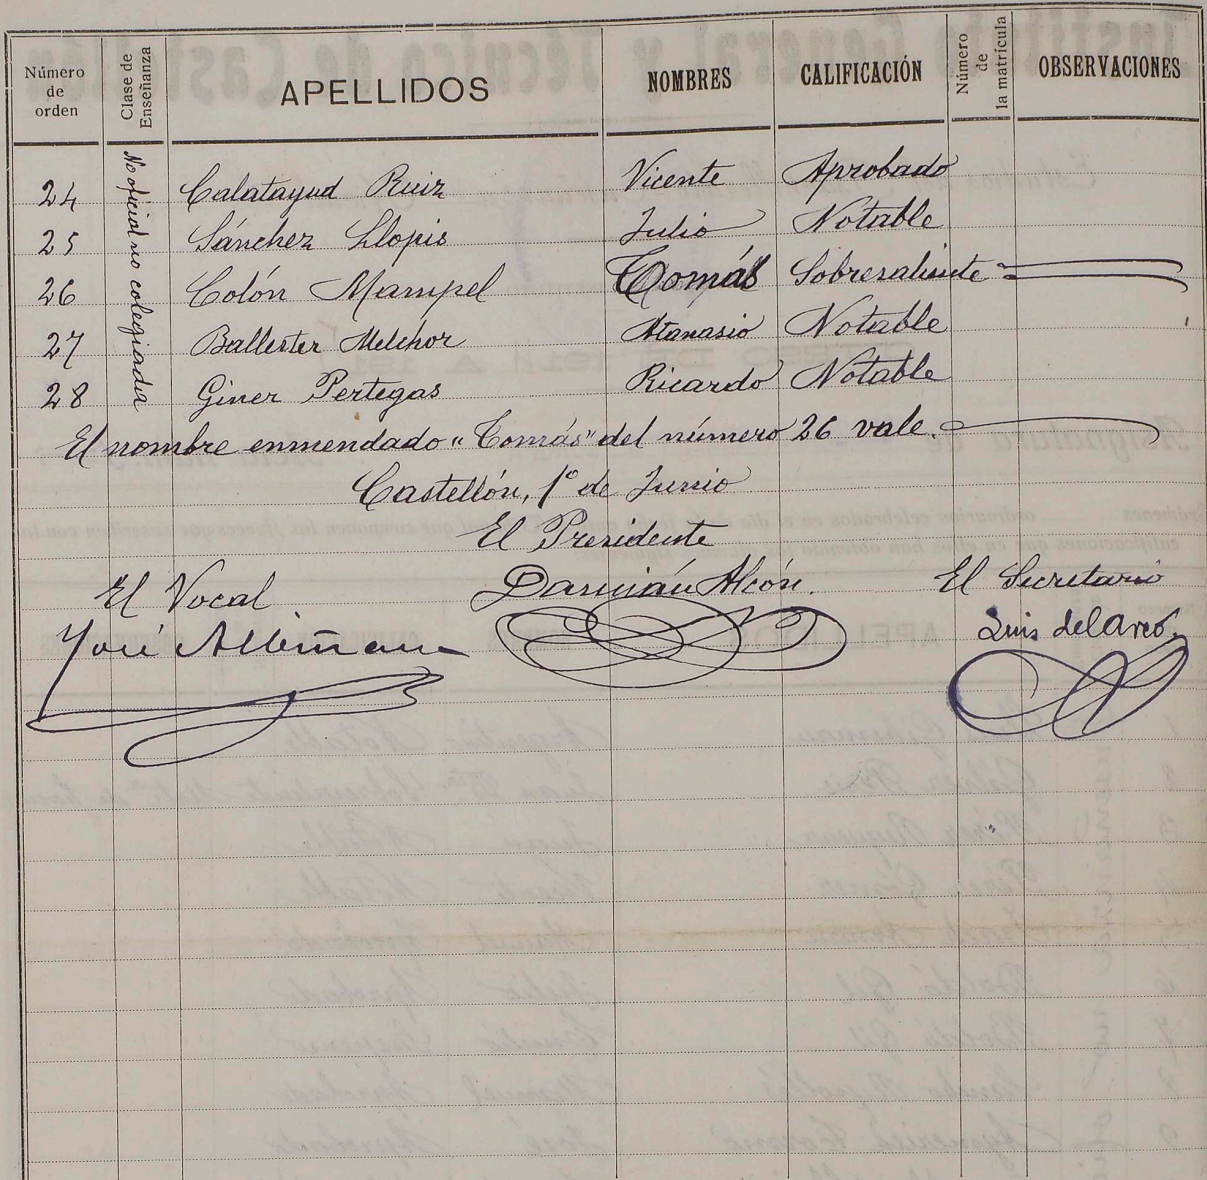 Número de orden | Clase de Enseñanza | APELLIDOS | NOMBRES | CALIFICACIÓN | Número de la matrícula | OBSERVACIONES
No oficial no colegiada
24 Calatayud Ruiz Vicente Aprobado
25 Sánchez Llopis Julio Notable
26 Colón Mampel Tomás Sobresaliente
27 Ballester Melchor Atanasio Notable
28 Giner Pertegas Ricardo Notable
El nombre enmendado "Tomás" del número 26 vale.
Castellón, 1º de Junio
El Presidente
El Vocal Damián Alcón. El Secretario
José Luis del Arco.